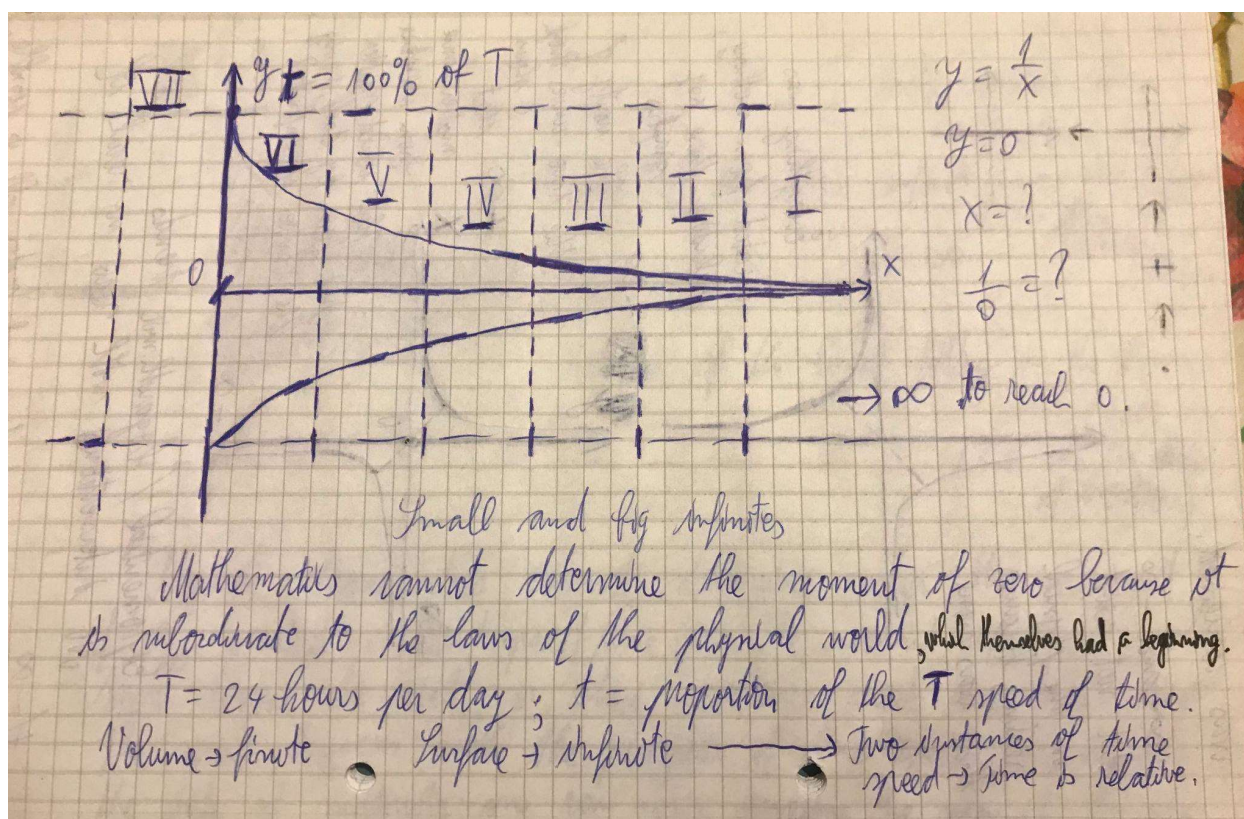 y t = 100% of T
VII
VI
V
IV
III
II
I
0
x
y = 1/x
y = 0
x = ?
1/0 = ?
→ ∞ to reach 0.
Small and big infinites
Mathematics cannot determine the moment of zero because it
is subordinate to the laws of the physical world, which themselves had a beginning.
T = 24 hours per day ; t = proportion of the T speed of time.
Volume → finite Surface → infinite → Two instances of time
speed → Time is relative.